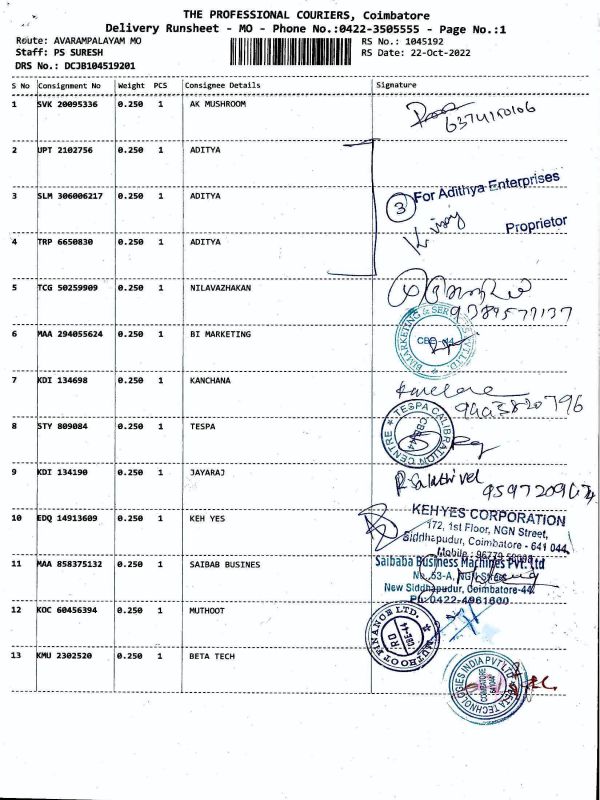 THE PROFESSIONAL COURIERS, Coimbatore
Delivery Runsheet - MO - Phone No.:0422-3505555 - Page No.:1
Route: AVARAMPALAYAM MO RS No.: 1045192
Staff: PS SURESH RS Date: 22-Oct-2022
DRS No.: DCJB104519201
S No Consignment No Weight PCS Consignee Details Signature
1 SVK 20095336 0.250 1 AK MUSHROOM
6374150106
2 UPT 2102756 0.250 1 ADITYA
3 SLM 306006217 0.250 1 ADITYA
3 For Adithya Enterprises
Proprietor
4 TRP 6650830 0.250 1 ADITYA
5 TCG 50259909 0.250 1 NILAVAZHAKAN
9384577137
6 MAA 294055624 0.250 1 BI MARKETING
BIMARKETING & SERVICES PVT. LTD.
7 KDI 134698 0.250 1 KANCHANA
8 STY 809084 0.250 1 TESPA
TESPA CALIBRATION CENTRE
CBE-44
9 KDI 134190 0.250 1 JAYARAJ
10 EDQ 14913609 0.250 1 KEH YES
KEH YES CORPORATION
172, 1st Floor, NGN Street,
Siddhapudur, Coimbatore - 641 044.
11 MAA 858375132 0.250 1 SAIBAB BUSINES
Saibaba Business Machines Pvt. Ltd
No.53-A, NGN Street
New Siddhapudur, Coimbatore-44.
Ph:0422-4961800
12 KOC 60456394 0.250 1 MUTHOOT
MUTHOOT FINANCE LTD.
RO
CBE-44
13 KMU 2302520 0.250 1 BETA TECH
BETA TECHNOLOGIES INDIA PVT LTD
COIMBATORE